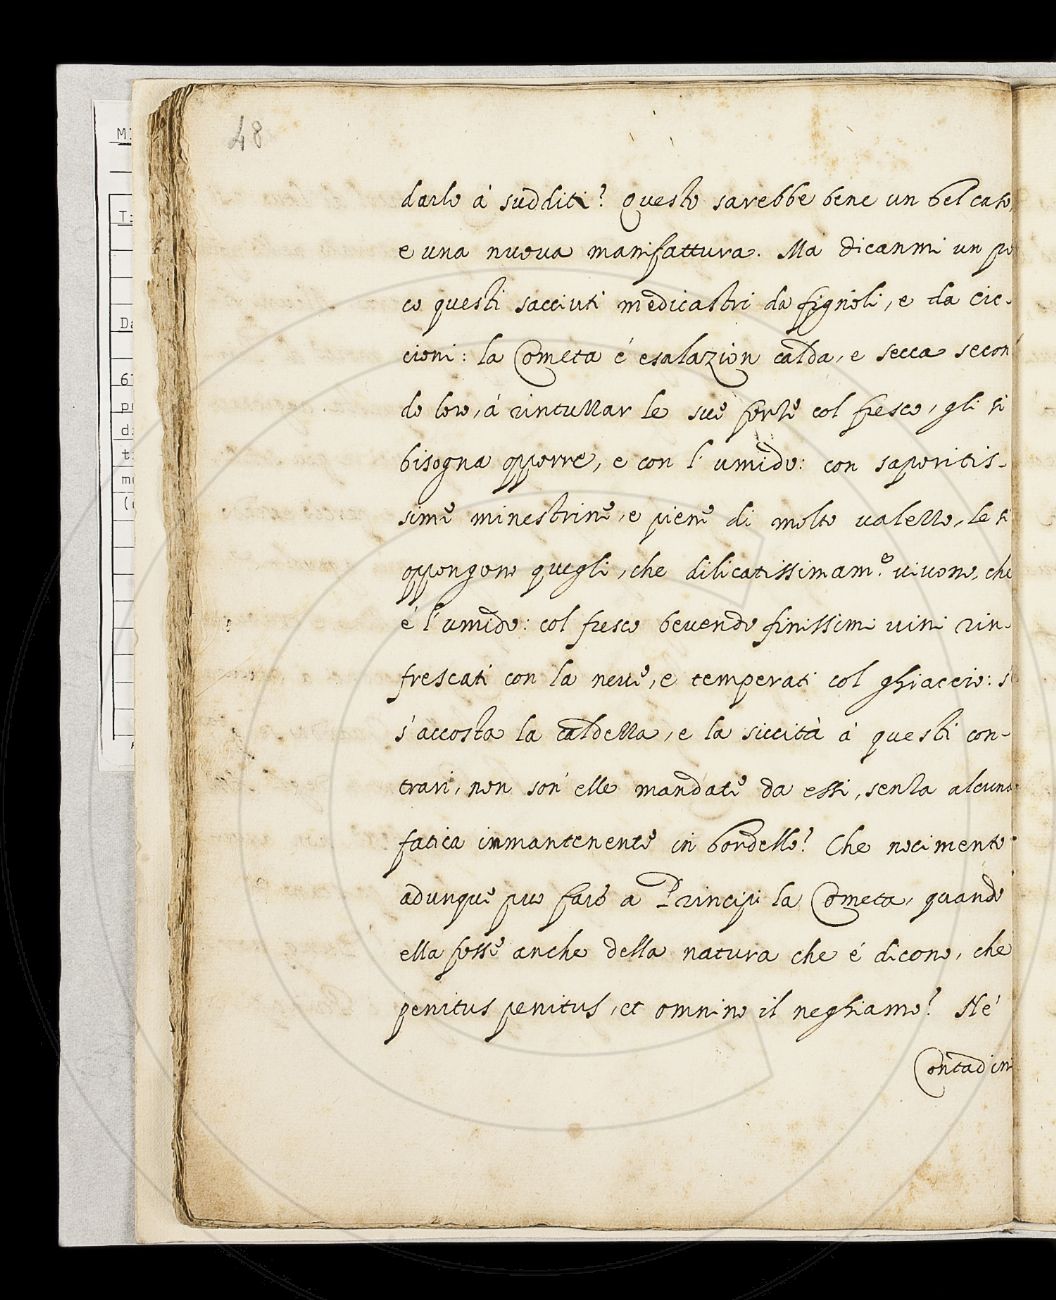 48
darlo á sudditi? Questo sarebbe bene un bel cato,
e una nuova manifattura. Ma dicanmi un po
co questi sacciuti medicastri da fignoli, e da cic-
cioni: la Cometa é esalazion calda, e secca secon
do loro, á rintuzzar le sue forze col fresco, gli si
bisogna opporre, e con l'umido: con saporitis-
sime minestrine, e piene di molto valezzo, le si
oppongono quegli, che dilicatissimam.e vivono, che
é l'umido: col fresco bevendo finissimi vini rin-
frescati con la neve, e temperati col ghiaccio: s'
s'accosta la caldezza, e la siccità á questi con-
trari, non son' elle mandate da essi, senza alcuna
fatica inmantenente in bordello? Che nocimento
adunque puo fare a Principi la Cometa, quando
ella fosse anche della natura che é dicono, che
penitus penitus, et omnino il neghiamo? Né
Contadini